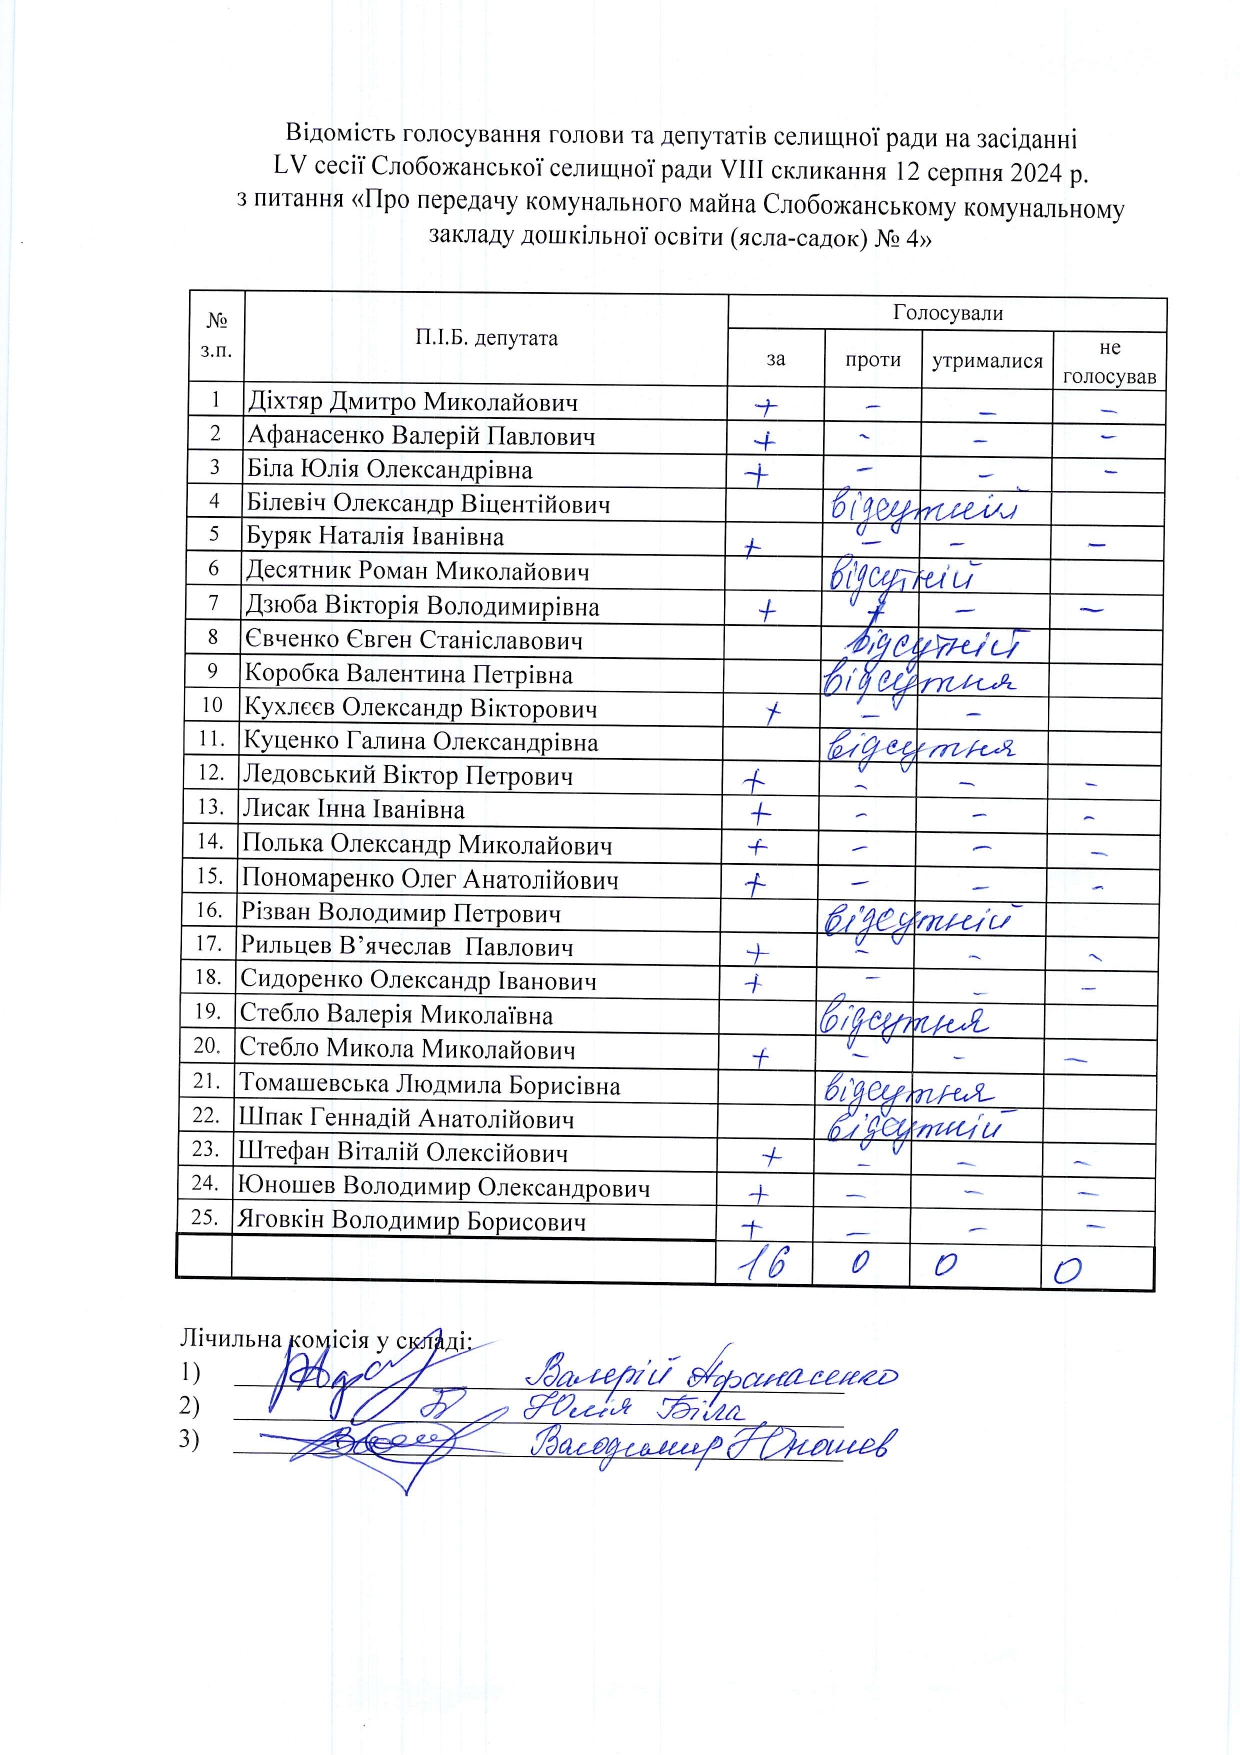 Відомість голосування голови та депутатів селищної ради на засіданні
LV сесії Слобожанської селищної ради VIII скликання 12 серпня 2024 р.
з питання «Про передачу комунального майна Слобожанському комунальному
закладу дошкільної освіти (ясла-садок) № 4»
№ з.п. П.І.Б. депутата Голосували
за проти утрималися не голосував
1 Діхтяр Дмитро Миколайович + - - -
2 Афанасенко Валерій Павлович + - - -
3 Біла Юлія Олександрівна + - - -
4 Білевіч Олександр Віцентійович відсутній
5 Буряк Наталія Іванівна + - - -
6 Десятник Роман Миколайович відсутній
7 Дзюба Вікторія Володимирівна + + - -
8 Євченко Євген Станіславович відсутній
9 Коробка Валентина Петрівна відсутня
10 Кухлєєв Олександр Вікторович + - -
11. Куценко Галина Олександрівна відсутня
12. Ледовський Віктор Петрович + - - -
13. Лисак Інна Іванівна + - - -
14. Полька Олександр Миколайович + - - -
15. Пономаренко Олег Анатолійович + - - -
16. Різван Володимир Петрович відсутній
17. Рильцев В’ячеслав Павлович + - - -
18. Сидоренко Олександр Іванович + - - -
19. Стебло Валерія Миколаївна відсутня
20. Стебло Микола Миколайович + - - -
21. Томашевська Людмила Борисівна відсутня
22. Шпак Геннадій Анатолійович відсутній
23. Штефан Віталій Олексійович + - - -
24. Юношев Володимир Олександрович + - - -
25. Яговкін Володимир Борисович + - - -
16 0 0 0
Лічильна комісія у складі:
1) Валерій Афанасенко
2) Юлія Біла
3) Володимир Юношев